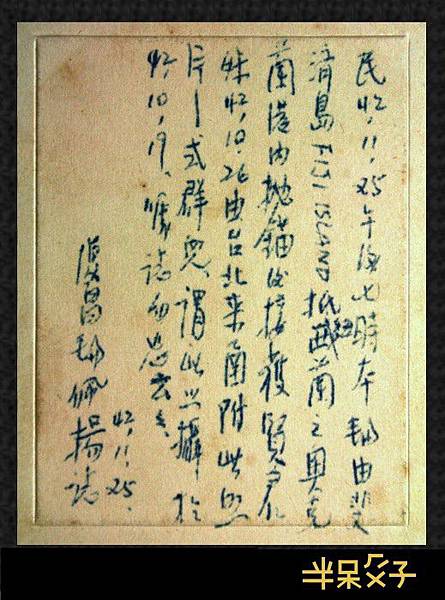 民42,11,25午後七時本輪由斐
濟島FIJI ISLAND抵紐西蘭之奧克
蘭港內拋錨後接獲賢妻仁
妹42,10,26由台北來函附此照
片一式群兒,謂此照攝於
42,10,19,誌勿忘云
復昌輪佩揚誌
42,11,25.
半呆父子